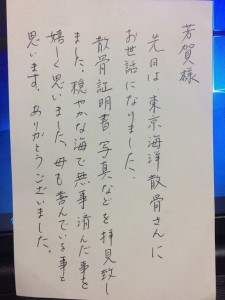 芳賀様
先日は東京海洋散骨さんに
お世話になりました、
散骨証明書、写真などを拝見致し
ました。穏やかな海で無事済んだ事を
嬉しく思いました。母も喜んでいる事と
思います。ありがとうございました。